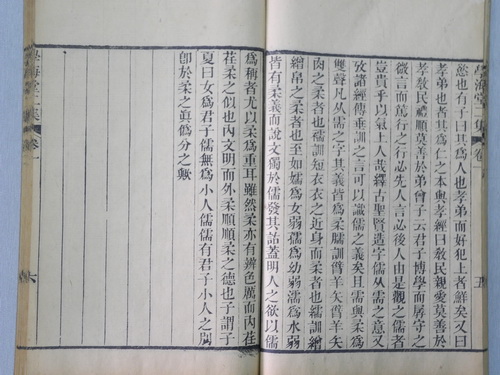 慾也有子曰其爲人也孝弟而好犯上者鮮矣又曰
孝弟也者其爲仁之本與孝經曰敎民親愛莫善於
孝敎民禮順莫善於弟曾子云君子博學而孱守之
微言而篤行之行必先人言必後人由是觀之儒者
豈貴乎以氣上人哉繹古聖賢造字儒从需之意又
攷諸經傳垂訓之言可以識儒之義矣且需與耎爲
雙聲凡从需之字其義皆爲柔臑訓臂羊矢臂羊矢
肉之柔者也襦訓短衣衣之近身而柔者也繻訓繒
繒帛之柔者也至如嬬爲女弱孺爲幼弱濡爲水弱
皆有柔義而說文獨於儒發其詁蓋明人之欲以儒
爲稱者尤以柔爲重耳雖然柔亦有辨色厲而內荏
荏柔之似也內文明而外柔順順柔之德也子謂子
夏曰女爲君子儒無爲小人儒儒有君子小人之別
卽於柔之眞僞分之歟
學海堂二集 卷一 六